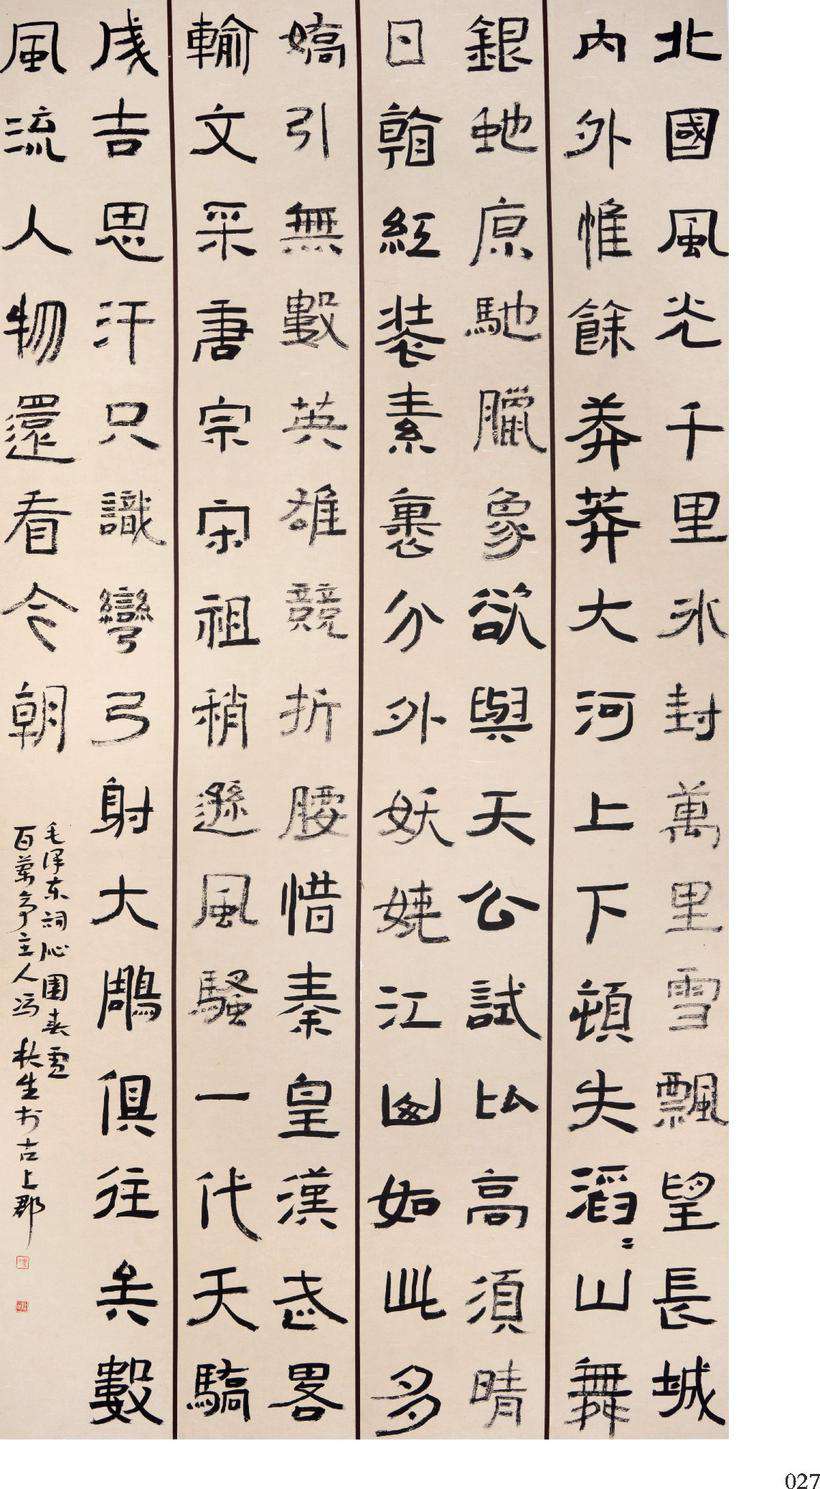 北國風光千里冰封萬里雪飄望長城
内外惟餘莽莽大河上下頓失滔〻山舞
銀虵原馳臘象欲與天公試比高須晴
日看紅装素裹分外妖嬈江山如此多
嬌引無數英雄競折腰惜秦皇漢武畧
輸文采唐宗宋祖稍遜風騷一代天驕
成吉思汗只識彎弓射大鵰俱往矣數
風流人物還看今朝
毛泽东词沁園春雪
百萬亭主人冯秋生於古上郡
027